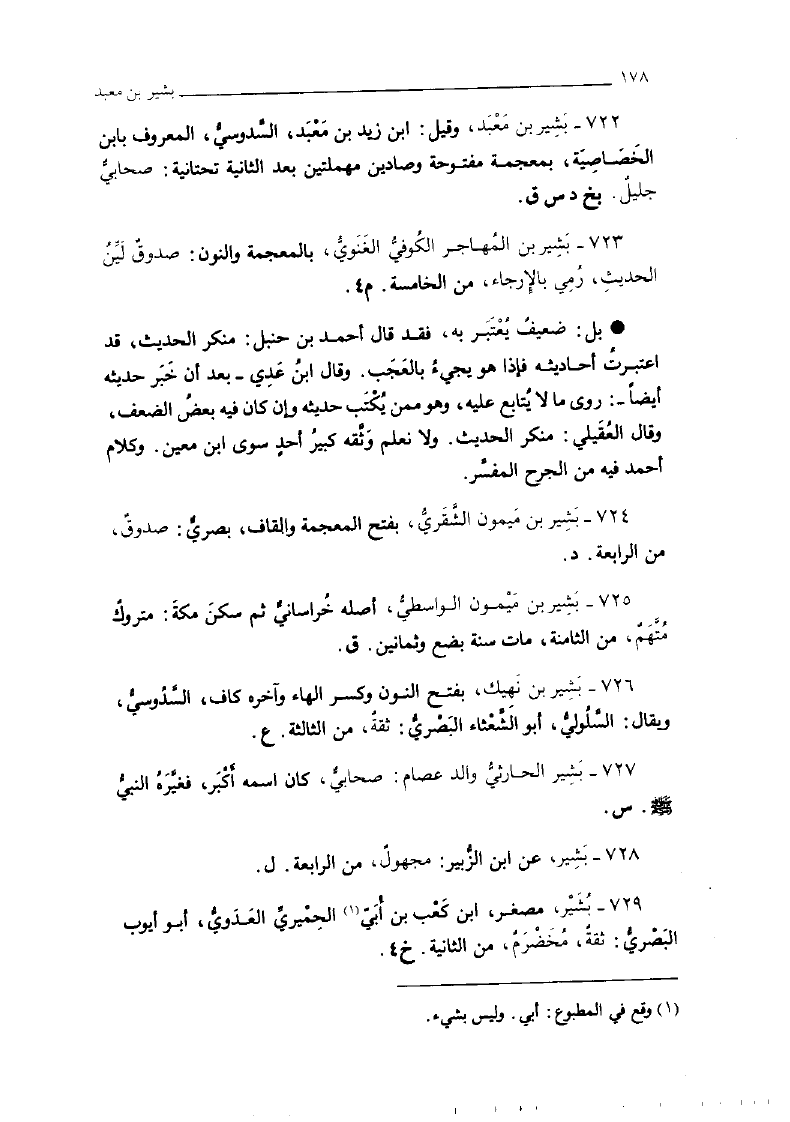 ١٧٨ بشير بن معبد
٧٢٢ - بَشِير بن مَعْبَد، وقيل: ابن زيد بن مَعْبَد، السَّدوسيُّ، المعروف بابن
الخَصَاصِيَة، بمعجمة مفتوحة وصادين مهملتين بعد الثانية تحتانية: صحابيٌّ
جليلٌ. بخ د س ق.
٧٢٣ - بَشِير بن المُهاجر الكُوفيُّ الغَنَويُّ، بالمعجمة والنون: صدوقٌ لَيِّنُ
الحديثِ، رُمِي بالإرجاء، من الخامسة. م٤.
● بل: ضعيفٌ يُعْتَبَر به، فقد قال أحمد بن حنبل: منكر الحديث، قد
اعتبرتُ أحاديثه فإذا هو يجيءُ بالعَجَب. وقال ابنُ عَدِي ـ بعد أن خَبَر حديثه
أيضاً ـ: روى ما لا يُتابع عليه، وهو ممن يُكْتَب حديثه وإن كان فيه بعضُ الضعف،
وقال العُقَيلي: منكر الحديث. ولا نعلم وَثَّقه كبيرُ أحدٍ سوى ابن معين. وكلام
أحمد فيه من الجرح المفسَّر.
٧٢٤ - بَشِير بن مَيمون الشَّقَريُّ، بفتح المعجمة والقاف، بصريٌّ: صدوقٌ،
من الرابعة. د.
٧٢٥ - بَشِير بن مَيْمون الواسطيُّ، أصله خُراسانيٌّ ثم سكنَ مكةَ: متروكٌ
مُتَّهَمٌ، من الثامنة، مات سنة بضع وثمانين. ق.
٧٢٦ - بَشِير بن نَهِيك، بفتح النون وكسر الهاء وآخره كاف، السَّدُوسيُّ،
ويقال: السَّلُوليُّ، أبو الشَّعْثاء البَصْريُّ: ثقةٌ، من الثالثة. ع.
٧٢٧ - بَشِير الحارثيُّ والد عصام: صحابيٌّ، كان اسمه أَكْبَر، فغيَّرَهُ النبيُّ
ﷺ. س.
٧٢٨ - بَشِير، عن ابن الزُّبير: مجهولٌ، من الرابعة. ل.
٧٢٩ - بُشَيْر، مصغر، ابن كَعْب بن أُبَيّ(١) الحِمْيريِّ العَدَويُّ، أبو أيوب
البَصْريُّ: ثقةٌ، مُخَضْرَمٌ، من الثانية. خ٤.
(١) وقع في المطبوع: أبي. وليس بشيء.